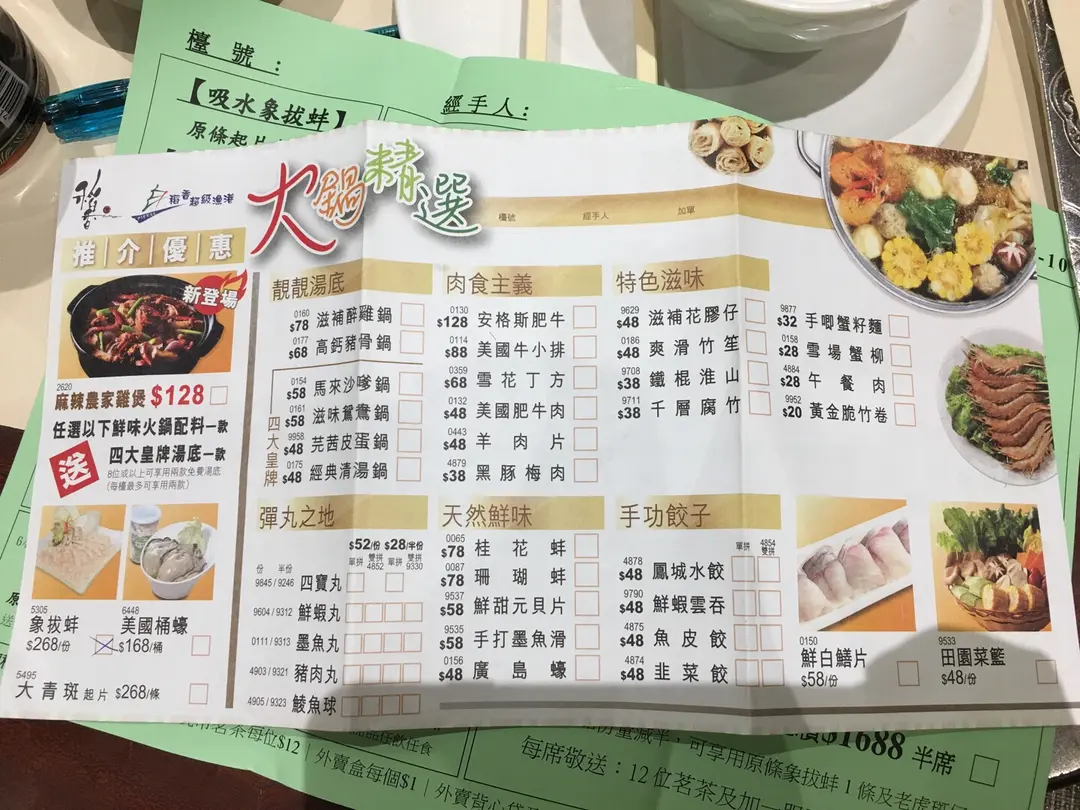 檯號：
【吸水象拔蚌】
經手人：
原條起片
稻香
稻香超級漁港
火鍋精選
檯號 經手人 加單
推介優惠
新登場
2620
麻辣農家雞煲 $128
任選以下鮮味火鍋配料一款
送
四大皇牌湯底一款
8位或以上可享用兩款免費湯底
(每檯最多可享用兩款)
5305
象拔蚌
$268/份
6448
美國桶蠔
$168/桶
5495
大青斑起片 $268/條
靚靚湯底
0160
$78 滋補醉雞鍋
0177
$68 高鈣豬骨鍋
四大皇牌
0154
$58 馬來沙嗲鍋
0161
$58 滋味鴛鴦鍋
9958
$48 芫茜皮蛋鍋
0175
$48 經典清湯鍋
肉食主義
0130
$128 安格斯肥牛
0114
$88 美國牛小排
0359
$68 雪花丁方
0132
$48 美國肥牛肉
0443
$48 羊肉片
4879
$38 黑豚梅肉
特色滋味
9629
$48 滋補花膠仔
0186
$48 爽滑竹笙
9708
$38 鐵棍淮山
9711
$38 千層腐竹
9877
$32 手唧蟹籽麵
0158
$28 雪場蟹柳
4884
$28 午餐肉
9952
$20 黃金脆竹卷
彈丸之地
$52/份 $28/半份
單拼 雙拼 4852 單拼 雙拼 9330
份 半份
9845 / 9246 四寶丸
9604 / 9312 鮮蝦丸
0111 / 9313 墨魚丸
4903 / 9321 豬肉丸
4905 / 9323 鯪魚球
天然鮮味
0065
$78 桂花蚌
0087
$78 珊瑚蚌
9537
$58 鮮甜元貝片
9535
$58 手打墨魚滑
0156
$48 廣島蠔
手功餃子
單拼 4854 雙拼
4878
$48 鳳城水餃
9790
$48 鮮蝦雲吞
4875
$48 魚皮餃
4874
$48 韭菜餃
0150
鮮白鱔片
$58/份
9533
田園菜籃
$48/份
-10
茗茶每位$12 | 外賣盒每個$1 | 外賣背心袋
任飲任食
$1688 半席
減半，可享用原條象拔蚌1條及老虎斑
每席敬送：12位茗茶及加一